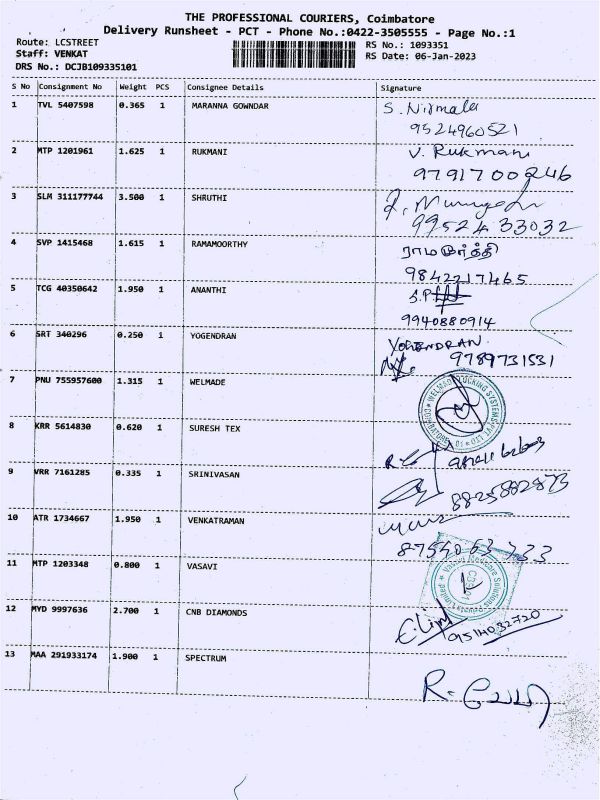 THE PROFESSIONAL COURIERS, Coimbatore
Delivery Runsheet - PCT - Phone No.:0422-3505555 - Page No.:1
Route: LCSTREET
RS No.: 1093351
Staff: VENKAT
RS Date: 06-Jan-2023
DRS No.: DCJB109335101
S No Consignment No Weight PCS Consignee Details Signature
1 TVL 5407598 0.365 1 MARANNA GOWNDAR S. Nirmala
9524960521
2 MTP 1201961 1.625 1 RUKMANI V. Rukmani
9791700246
3 SLM 311177744 3.500 1 SHRUTHI
9952433032
4 SVP 1415468 1.615 1 RAMAMOORTHY ராமமூர்த்தி
9842217465
5 TCG 40350642 1.950 1 ANANTHI
9940880914
6 SRT 340296 0.250 1 YOGENDRAN YOGENDRAN
9789731531
7 PNU 755957600 1.315 1 WELMADE
8 KRR 5614830 0.620 1 SURESH TEX
9 VRR 7161285 0.335 1 SRINIVASAN
8825882873
10 ATR 1734667 1.950 1 VENKATRAMAN
11 MTP 1203348 0.800 1 VASAVI
12 MYD 9997636 2.700 1 CNB DIAMONDS
9514032720
13 MAA 291933174 1.900 1 SPECTRUM